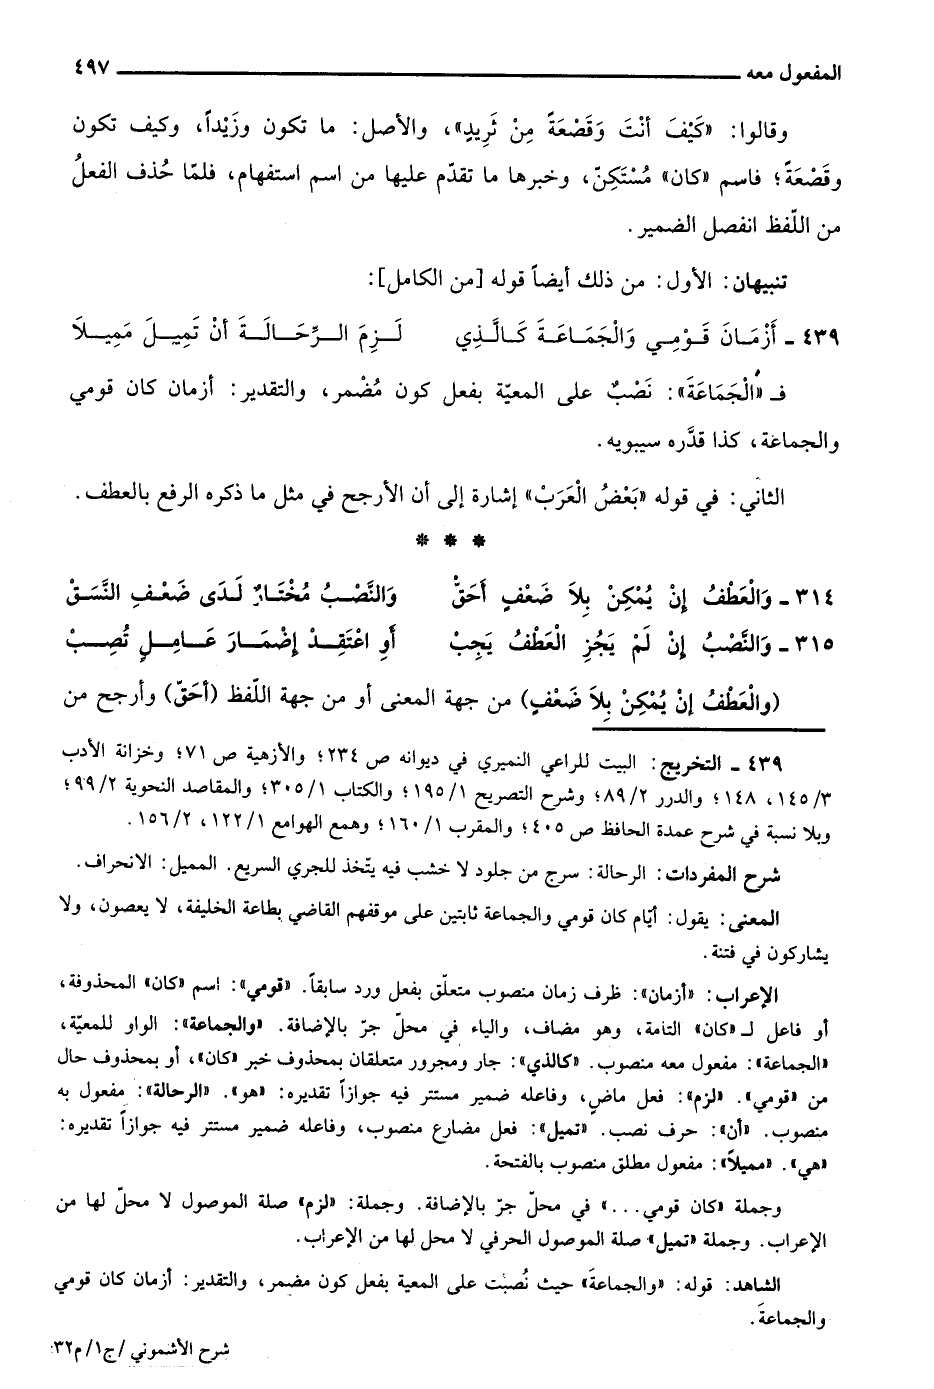 المفعول معه ــــــــــ ٤٩٧
وقالوا: «كَيْفَ أَنْتَ وَقَصْعَةً مِنْ ثَرِيدٍ»، والأصل: ما تكون وزَيْداً، وكيف تكون
وقَصْعَةً؛ فاسم «كان» مُسْتَكِنّ، وخبرها ما تقدّم عليها من اسم استفهام، فلمّا حُذف الفعلُ
من اللّفظ انفصل الضمير.
تنبيهان: الأول: من ذلك أيضاً قوله [من الكامل]:
٤٣٩ ـ أَزْمَـانَ قَـوْمِـي وَالْجَمَـاعَـةَ كَـالَّذِي لَـزِمَ الـرِّحَـالَـةَ أَنْ تَمِيـلَ مَمِيـلاَ
فـ «الْجَمَاعَةَ»: نَصْبٌ على المعيّة بفعل كون مُضْمر، والتقدير: أزمان كان قومي
والجماعة، كذا قدَّره سيبويه.
الثاني: في قوله «بَعْضُ الْعَرَبْ» إشارة إلى أن الأرجح في مثل ما ذكره الرفع بالعطف.
* * *
٣١٤ ـ وَالْعَطْفُ إِنْ يُمْكِنْ بِلاَ ضَعْفٍ أَحَقّْ وَالنَّصْـبُ مُخْتَـارٌ لَـدَى ضَعْـفِ النَّسَقْ
٣١٥ ـ وَالنَّصْبُ إِنْ لَمْ يَجُزِ الْعَطْفُ يَجِبْ أَوِ اعْتَقِـدْ إِضْمَـارَ عَـامِـلٍ تُصِـبْ
(والْعَطْفُ إنْ يُمْكِنْ بِلاَ ضَعْفٍ) من جهة المعنى أو من جهة اللّفظ (أحَقّ) وأرجح من
٤٣٩ ـ التخريج: البيت للراعي النميري في ديوانه ص ٢٣٤؛ والأزهية ص ٧١؛ وخزانة الأدب
٣/ ١٤٥، ١٤٨؛ والدرر ٢/ ٨٩؛ وشرح التصريح ١/ ١٩٥؛ والكتاب ١/ ٣٠٥؛ والمقاصد النحوية ٢/ ٩٩؛
وبلا نسبة في شرح عمدة الحافظ ص ٤٠٥؛ والمقرب ١/ ١٦٠؛ وهمع الهوامع ١/ ١٢٢، ٢/ ١٥٦.
شرح المفردات: الرحالة: سرج من جلود لا خشب فيه يتّخذ للجري السريع. المميل: الانحراف.
المعنى: يقول: أيّام كان قومي والجماعة ثابتين على موقفهم القاضي بطاعة الخليفة، لا يعصون، ولا
يشاركون في فتنة.
الإعراب: «أزمان»: ظرف زمان منصوب متعلّق بفعل ورد سابقاً. «قومي»: اسم «كان» المحذوفة،
أو فاعل لـ «كان» التامة، وهو مضاف، والياء في محلّ جرّ بالإضافة. «والجماعة»: الواو للمعيّة،
«الجماعة»: مفعول معه منصوب. «كالذي»: جار ومجرور متعلقان بمحذوف خبر «كان»، أو بمحذوف حال
من «قومي». «لزم»: فعل ماضٍ، وفاعله ضمير مستتر فيه جوازاً تقديره: «هو». «الرحالة»: مفعول به
منصوب. «أن»: حرف نصب. «تميل»: فعل مضارع منصوب، وفاعله ضمير مستتر فيه جوازاً تقديره:
«هي». «مميلاً»: مفعول مطلق منصوب بالفتحة.
وجملة «كان قومي...» في محلّ جرّ بالإضافة. وجملة: «لزم» صلة الموصول لا محلّ لها من
الإعراب. وجملة «تميل» صلة الموصول الحرفي لا محل لها من الإعراب.
الشاهد: قوله: «والجماعةَ» حيث نُصبت على المعية بفعل كون مضمر، والتقدير: أزمان كان قومي
والجماعةَ.
شرح الأشموني /ج١/ م٣٢